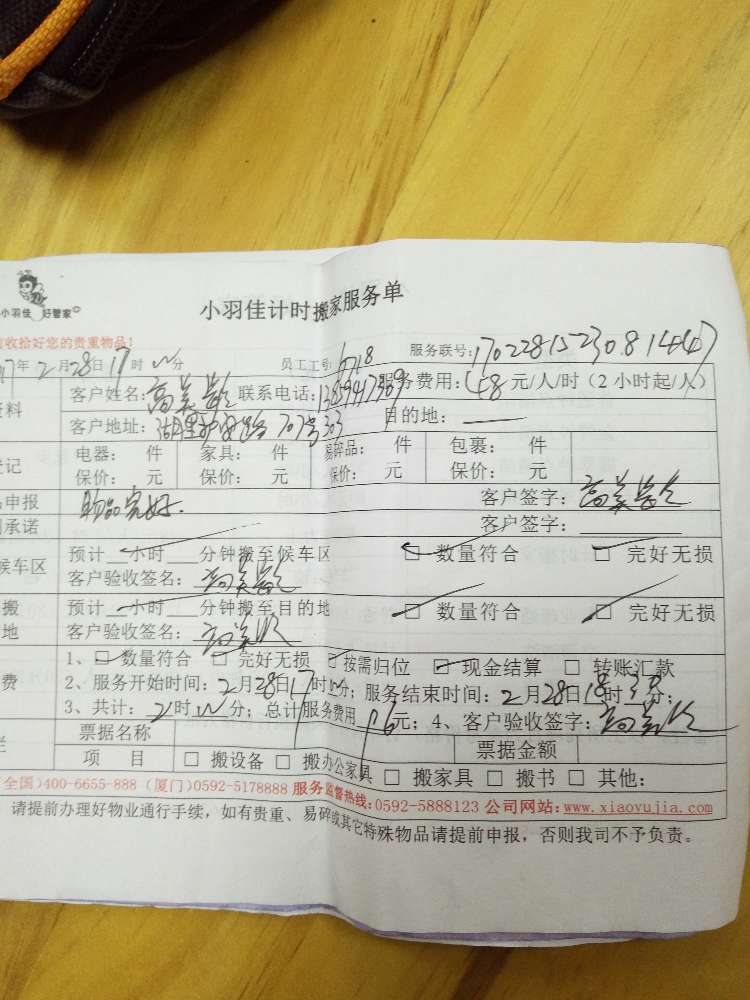 小羽佳 好管家
小羽佳计时搬家服务单
前收拾好您的贵重物品!
7年2月28日17时 分 员工工号 服务联号:
资料 客户姓名:高美 联系电话: 服务费用:48元/人/时(2小时起/人)
客户地址:湖里 路707号303 目的地:
登记 电器: 件 家具: 件 易碎品: 件 包裹: 件
保价: 元 保价: 元 保价: 元 保价: 元
申报 物品完好. 客户签字:高美
承诺 客户签字:
候车区 预计 小时 分钟搬至候车区 数量符合 完好无损
客户验收签名:高美
搬 预计 小时 分钟搬至目的地 数量符合 完好无损
地 客户验收签名:高美
1、 数量符合 完好无损 按需归位 现金结算 转账汇款
费 2、服务开始时间:2月28日17时 分;服务结束时间:2月28日 时 分;
3、共计:2时 分;总计服务费用 元;4、客户验收签字:高美
栏 票据名称 票据金额
项 目 搬设备 搬办公家具 搬家具 搬书 其他:
(全国)400-6655-888 (厦门)0592-5178888 服务监督热线:0592-5888123 公司网站:www.xiaoyujia.com
请提前办理好物业通行手续,如有贵重、易碎或其它特殊物品请提前申报,否则我司不予负责。